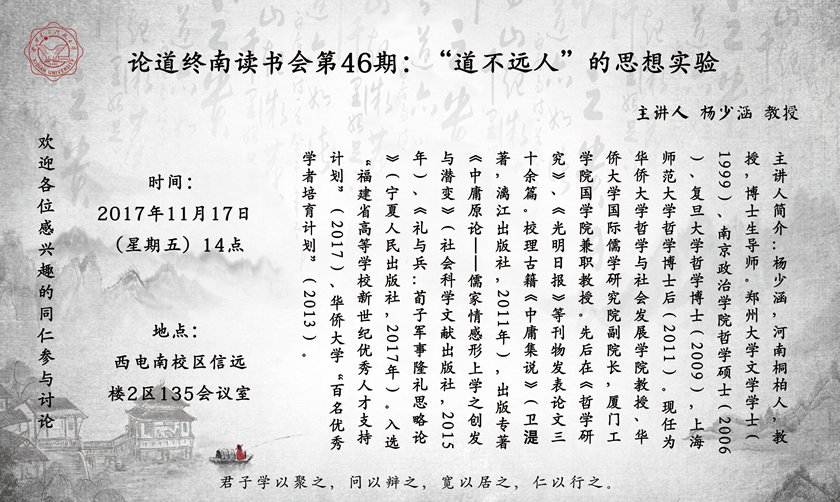 论道终南读书会第46期：“道不远人”的思想实验
主讲人 杨少涵 教授
主讲人简介：杨少涵，河南桐柏人，教
授，博士生导师。郑州大学文学学士（
1999）、南京政治学院哲学硕士（2006
）、复旦大学哲学博士（2009），上海
师范大学哲学博士后（2011）。现任为
华侨大学哲学与社会发展学院教授、华
侨大学国际儒学研究院副院长，厦门工
学院国学院兼职教授。先后在《哲学研
究》、《光明日报》等刊物发表论文三
十余篇。校理古籍《中庸集说》（卫湜
著，漓江出版社，2011年），出版专著
《中庸原论——儒家情感形上学之创发
与潜变》（社会科学文献出版社，2015
年）、《礼与兵：荀子军事隆礼思略论
》（宁夏人民出版社，2017年）。入选
“福建省高等学校新世纪优秀人才支持
计划”（2017）、华侨大学“百名优秀
学者培育计划”（2013）。
时间：
2017年11月17日
（星期五）14点
地点：
西电南校区信远
楼2区135会议室
欢迎各位感兴趣的同仁参与讨论
君子学以聚之，问以辩之，宽以居之，仁以行之。